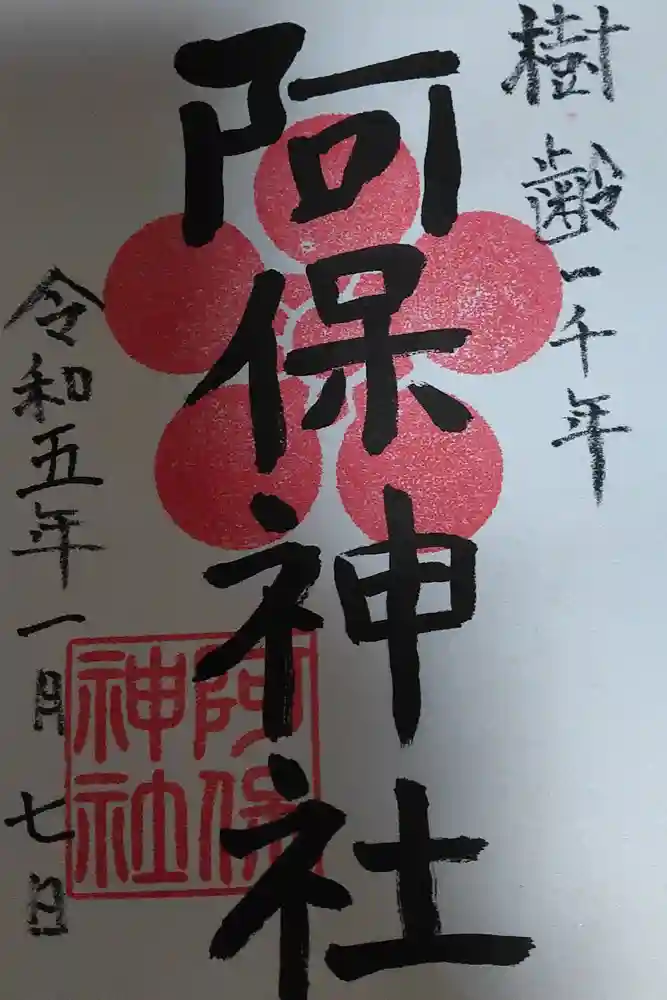 樹齢一千年
阿保神社
令和五年一月七日
阿保
神社